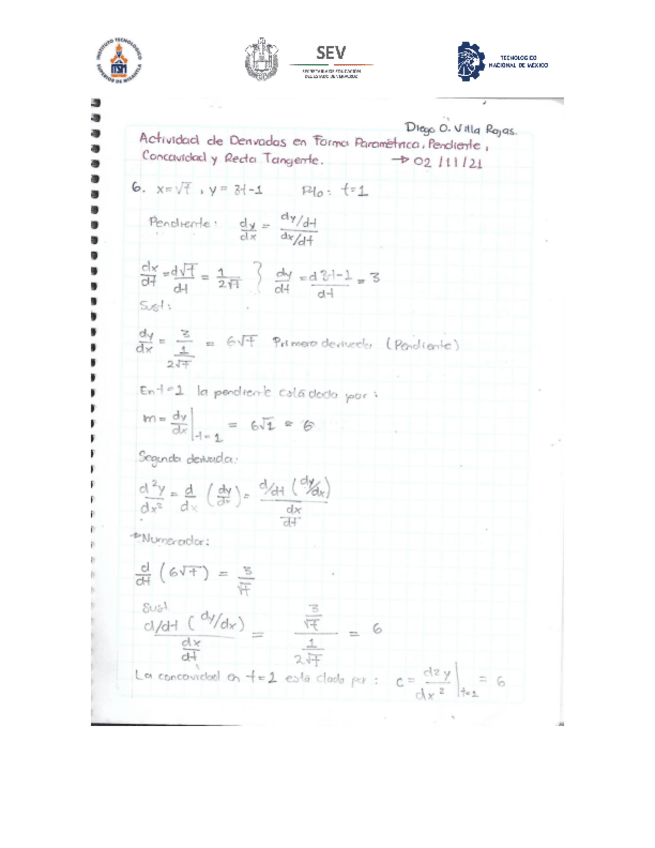 INSTITUTO TECNOLOGICO
SUPERIOR DE MISANTLA
SEV
SECRETARÍA DE EDUCACIÓN
DEL ESTADO DE VERACRUZ
TECNOLOGICO
NACIONAL DE MÉXICO
Diego O. Villa Rojas.
Actividad de Derivadas en Forma Paramétrica, Pendiente,
Concavidad y Recta Tangente. → 02/11/21
6. x=√t , y = 3t-1 Pto: t=1
Pendiente: dy/dx = (dy/dt)/(dx/dt)
dx/dt = d√t/dt = 1/(2√t) } dy/dt = d 3t-1/dt = 3
Sust:
dy/dx = 3/(1/(2√t)) = 6√t Primera derivada (Pendiente)
En t=1 la pendiente está dada por:
m = dy/dx | t=1 = 6√1 = 6
Segunda derivada:
d²y/dx² = d/dx (dy/dx) = d/dt (dy/dx) / (dx/dt)
→ Numerador:
d/dt (6√t) = 3/√t
Sust
d/dt (dy/dx) / (dx/dt) = (3/√t) / (1/(2√t)) = 6
La concavidad en t=1 esta dada por: c = d2y/dx² | t=1 = 6